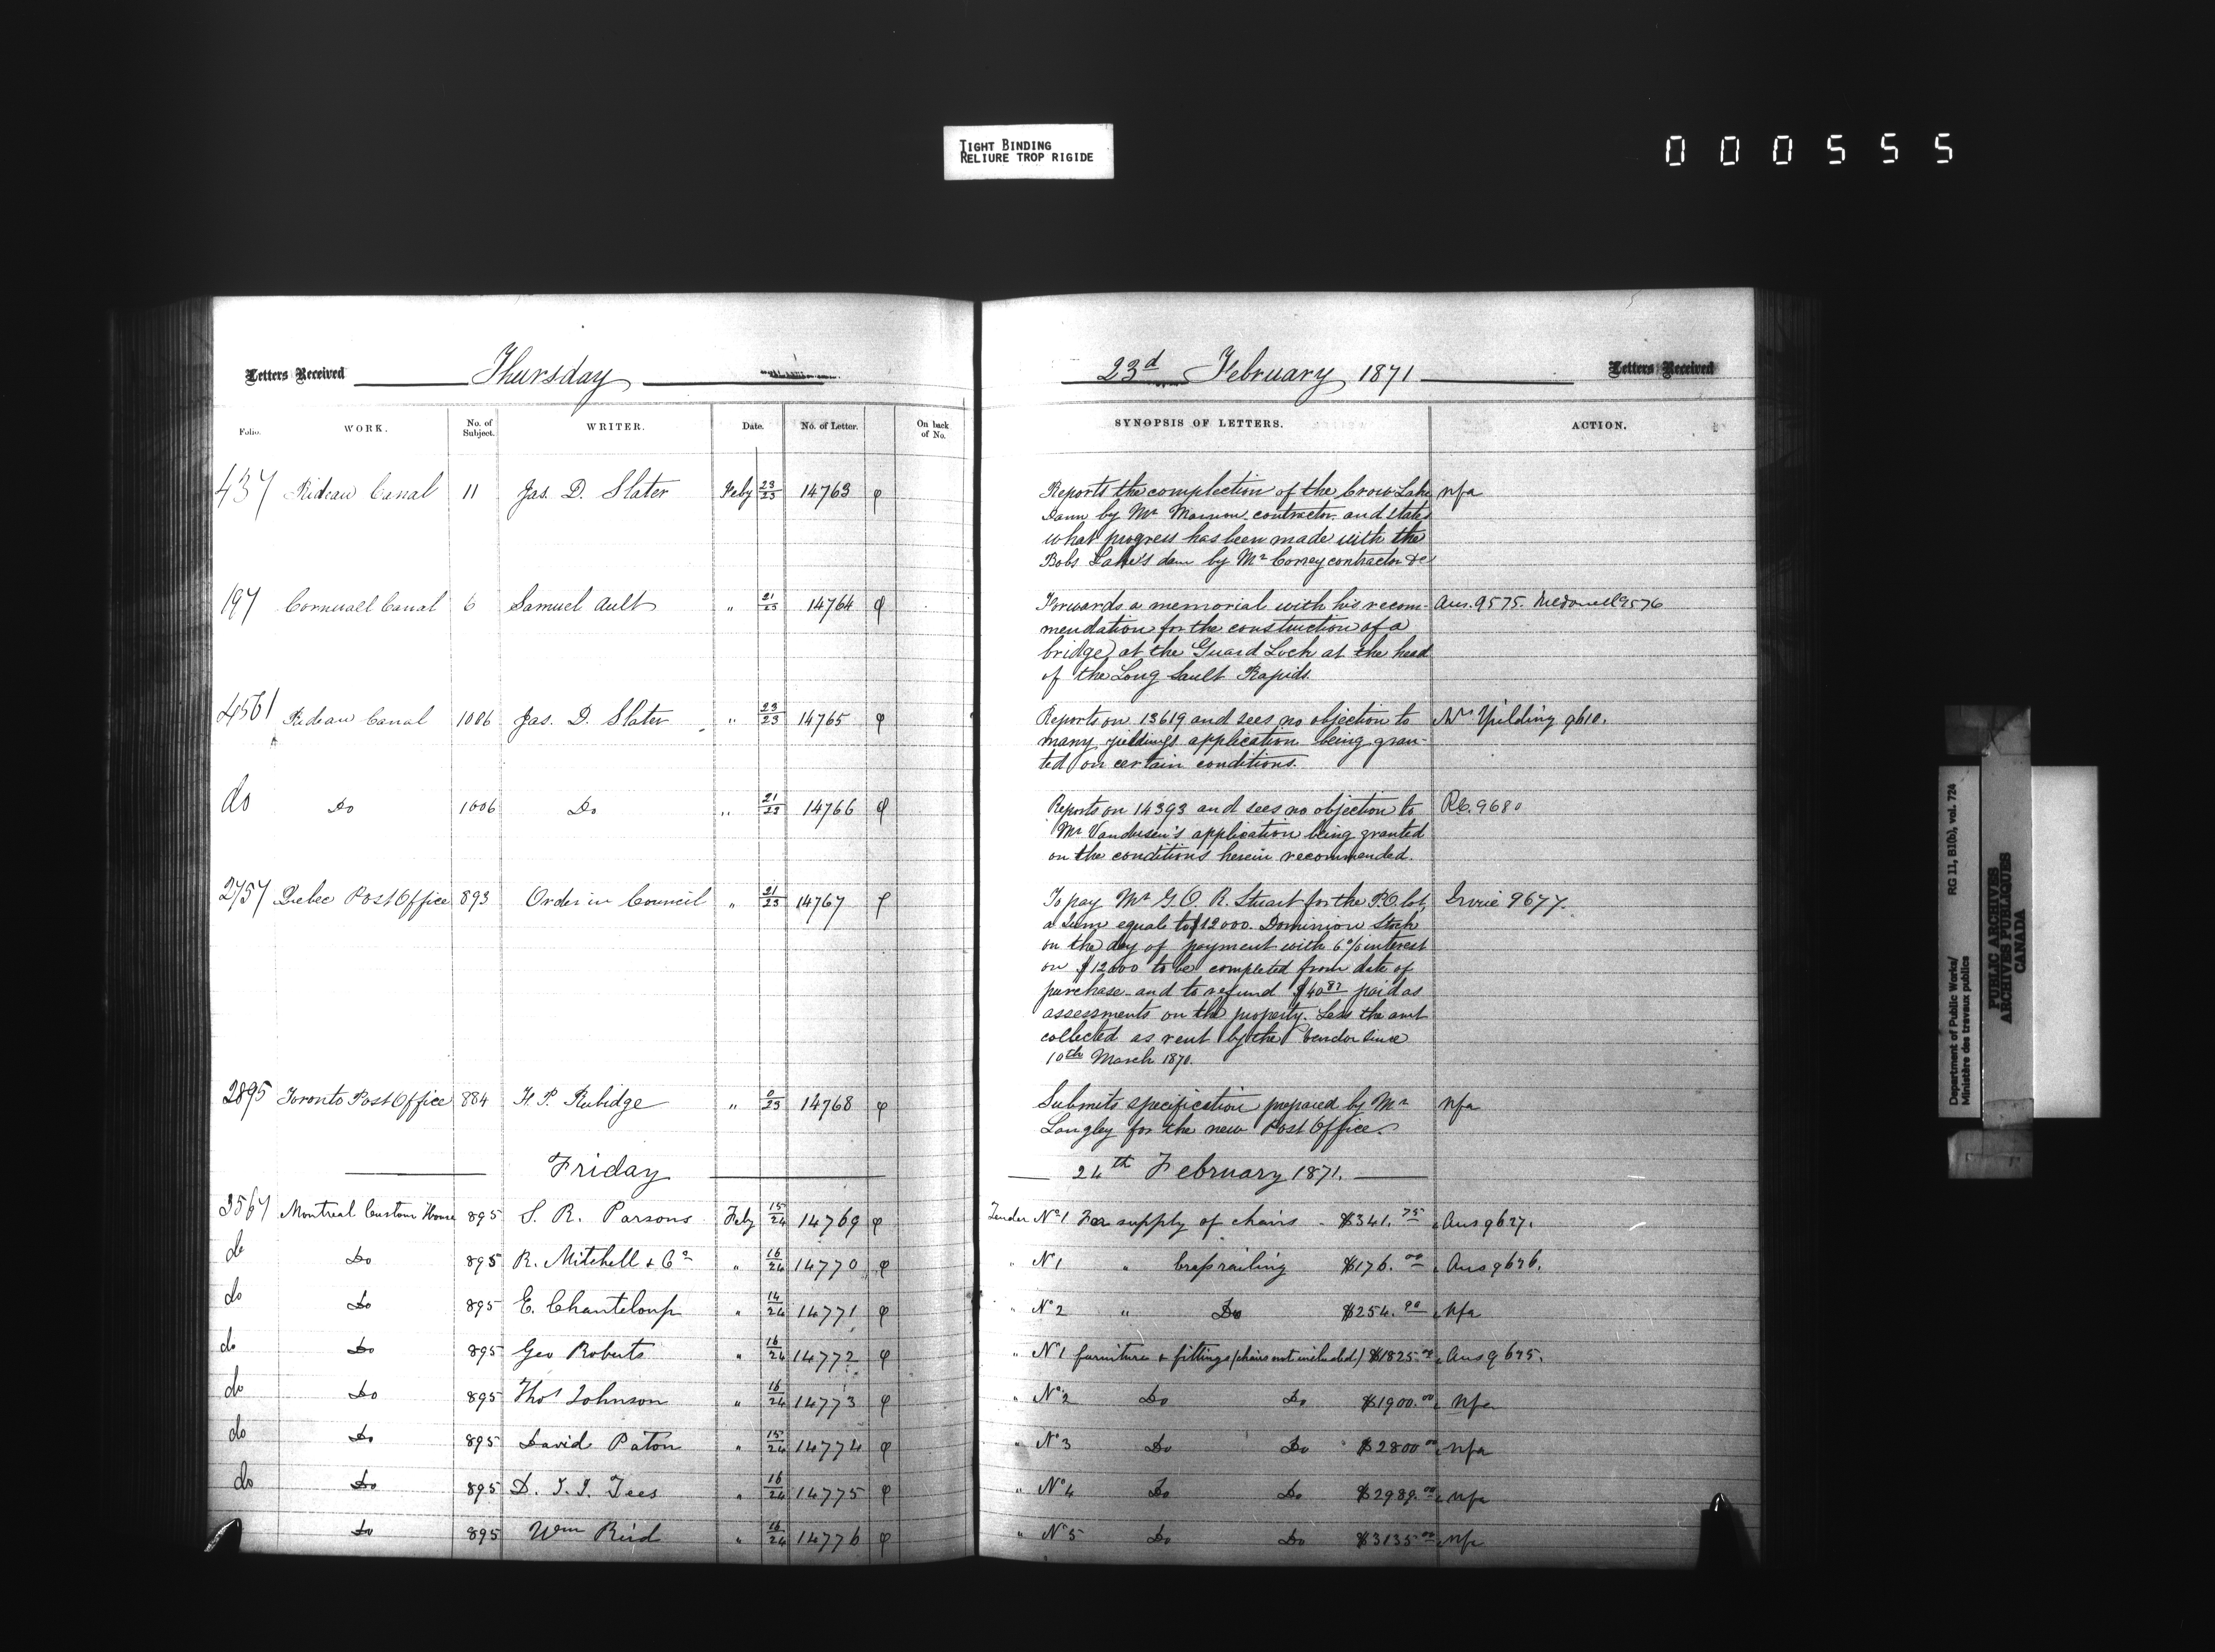 TIGHT BINDING
RELIURE TROP RIGIDE
000555
Letters Received Thursday
23d February 1871 Letters Received
Folio. WORK. No. of Subject. WRITER. Date. No. of Letter. On back of No. SYNOPSIS OF LETTERS. ACTION.
437 Rideau Canal 11 Jas. D. Slater Feby 23/23 14763 φ Reports the complection of the Crow Lake nfa
Dam by Mr contractor and states
what progress has been made with the
Bobs Lake's dam by Mr contractor &c
197 Cornwall Canal 6 Samuel Ault " 21/23 14764 φ Forwards a memorial with his recom- Ans. 9575. McDonell 9576
mendation for the construction of a
bridge at the Guard Lock at the head
of the Long Sault Rapids.
4561 Rideau Canal 1006 Jas. D. Slater " 23/23 14765 φ Reports on 13619 and sees no objection to Yielding 9610.
many yieldings application being gran-
ted on certain conditions.
do Do 1006 Do " 21/23 14766 φ Reports on 14393 and sees no objection to 9680
Mr Vandusen's application being granted
on the conditions herein recommended.
2757 Quebec Post Office 893 Order in Council " 21/23 14767 φ To pay Mr G. O. R. Stuart for the P.O. lot, 9677.
a sum equal to $12000. Dominion Stock
on the day of payment with 6% interest
on $12000 to be completed from date of
purchase and to refund $40 87 paid as
assessments on the property. Less the amt
collected as rent by the Vendor since
10th March 1870.
2895 Toronto Post Office 884 F. P. Rubidge " 0/23 14768 φ Submits specification prepared by Mr nfa
Langley for the new Post Office.
Friday 24th February 1871.
3567 Montreal Custom House 895 S. R. Parsons Feby 15/24 14769 φ Tender No 1 For supply of chairs - $341.75 Ans 9627.
do Do 895 R. Mitchell & Co " 16/24 14770 φ " No 1 " brass railing $176.00 Ans 9626.
do Do 895 E. Chanteloup " 14/24 14771 φ " No 2 " Do $254.90 nfa
do Do 895 Geo Roberts " 16/24 14772 φ " No 1 furniture & fittings (chairs not included) $1825.00 Ans 9625.
do Do 895 Thos Johnson " 16/24 14773 φ " No 2 Do Do $1900.00 nfa
do Do 895 David Paton " 15/24 14774 φ " No 3 Do Do $2800 00 nfa
do Do 895 D. T. J. Tees " 16/24 14775 φ " No 4 Do Do $2989.00 nfa
Do 895 Wm Reid " 16/24 14776 φ " No 5 Do Do $3135 00 nfa
Department of Public Works/ RG 11, B1(b), vol. 724
Ministère des travaux publics
PUBLIC ARCHIVES
ARCHIVES PUBLIQUES
CANADA